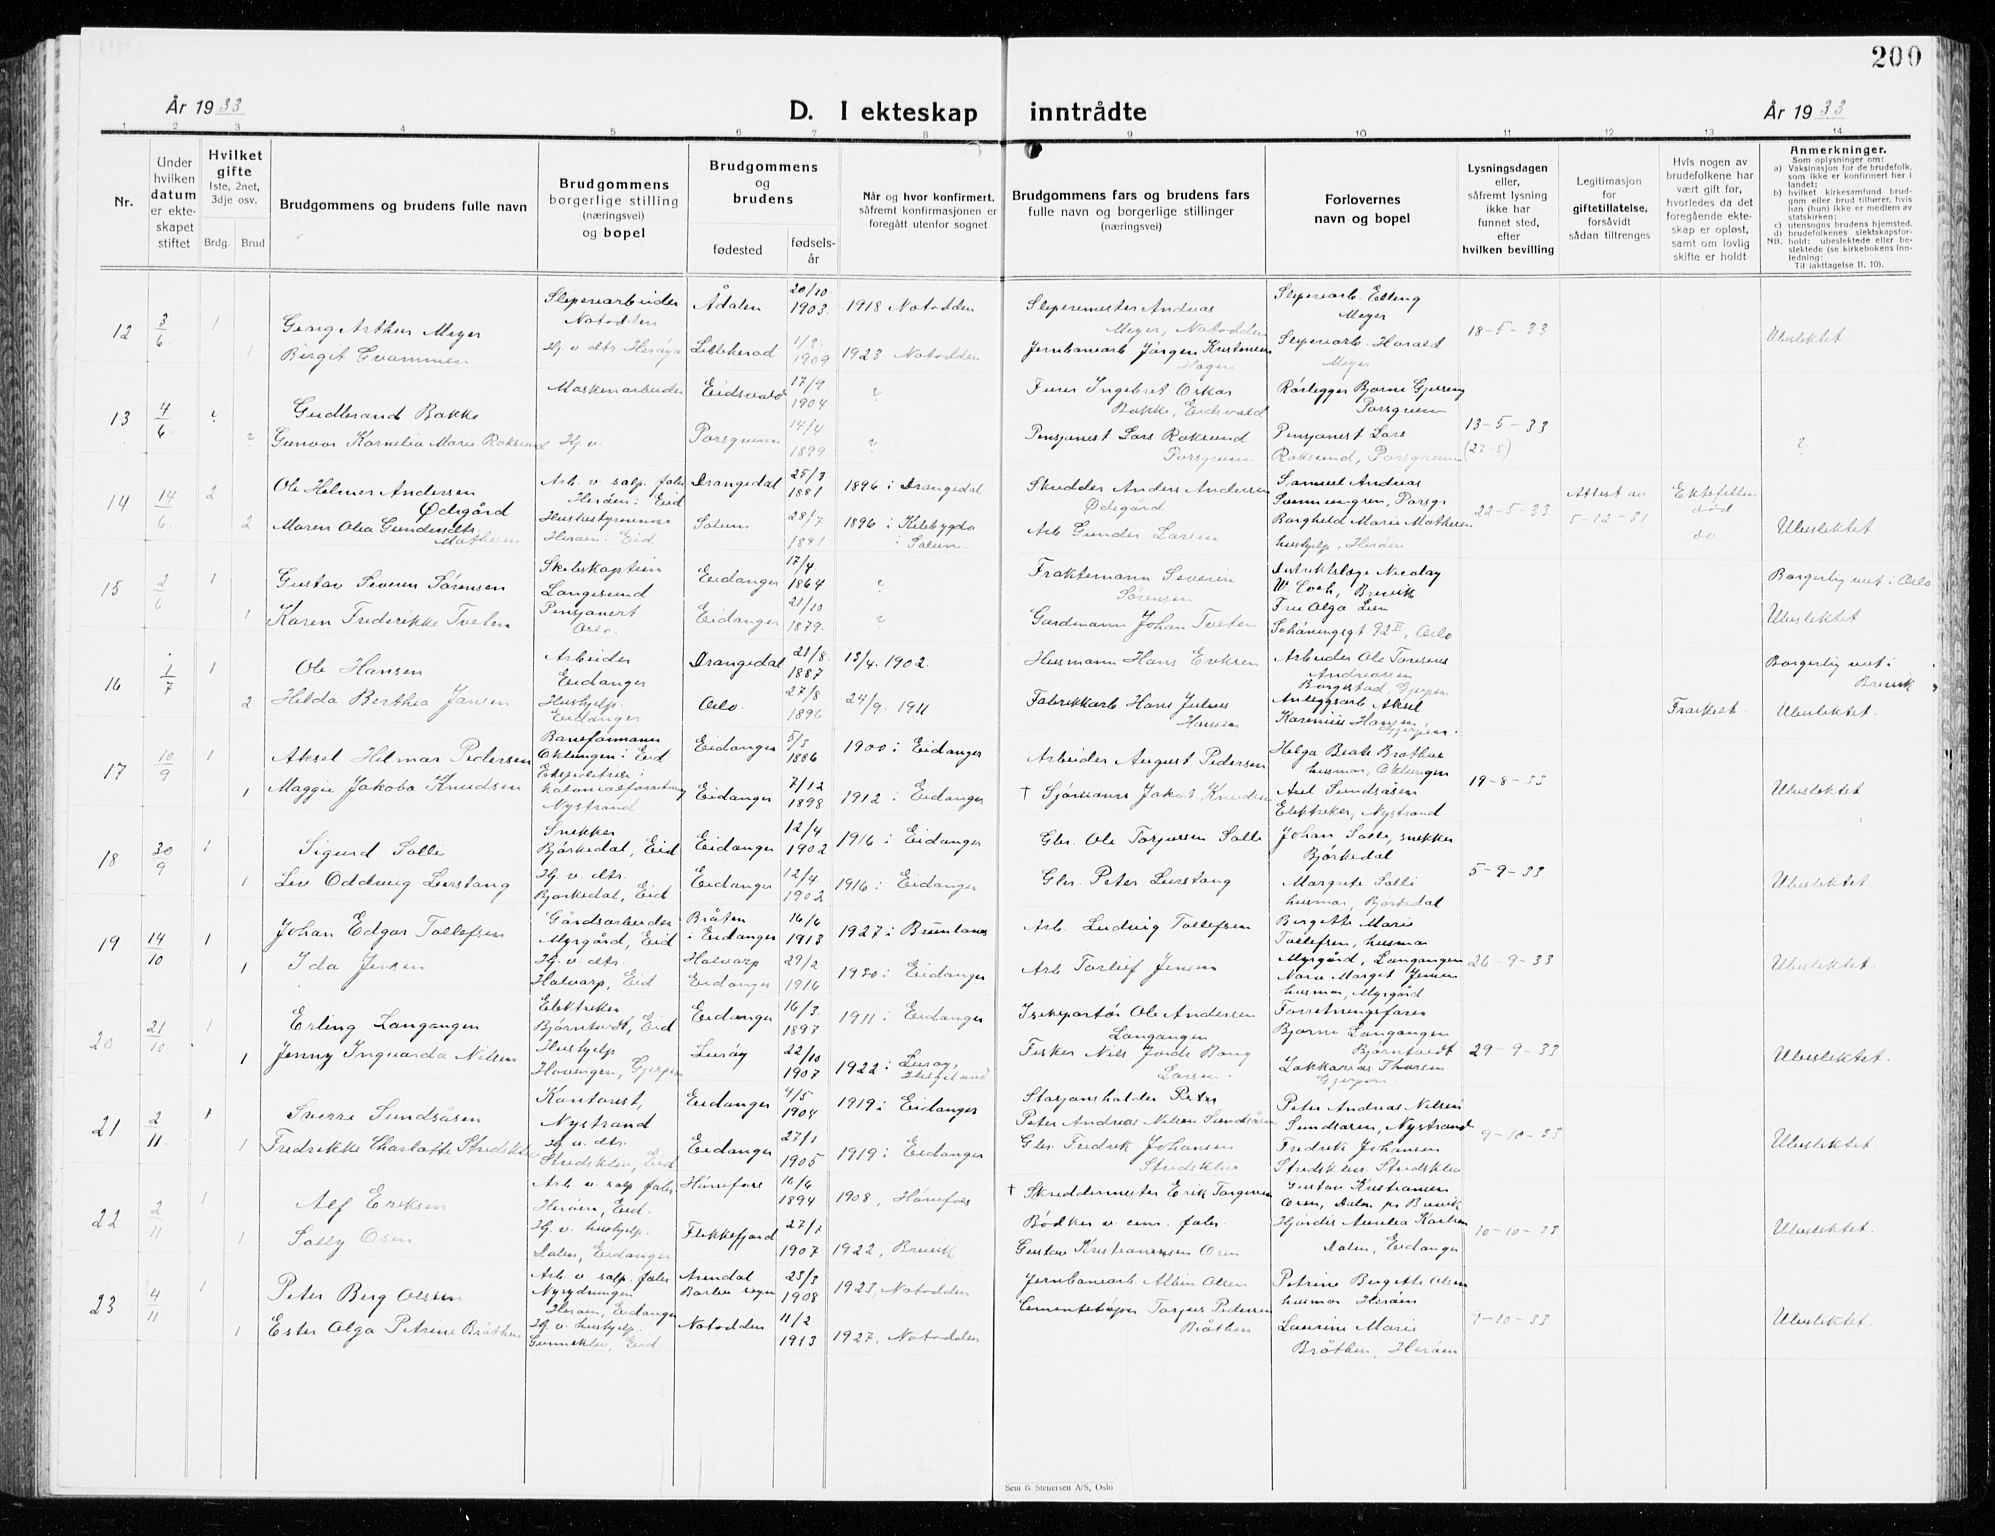 200
År 1933
D. I ekteskap inntrådte
År 1933
1 2 3 4 5 6 7 8 9 10 11 12 13 14
Nr.
Under
hvilken
datum
er ekte-
skapet
stiftet
Hvilket
gifte
1ste, 2net,
3dje osv.
Brdg. Brud
Brudgommens og brudens fulle navn
Brudgommens
borgerlige stilling
(næringsvei)
og bopel
Brudgommens
og
brudens
fødested
fødsels-
år
Når og hvor konfirmert,
såfremt konfirmasjonen er
foregått utenfor sognet
Brudgommens fars og brudens fars
fulle navn og borgerlige stillinger
(næringsvei)
Forlovernes
navn og bopel
Lysningsdagen
eller,
såfremt lysning
ikke har
funnet sted,
efter
hvilken bevilling
Legitimasjon
for
giftetillatelse,
forsåvidt
sådan tiltrenges
Hvis nogen av
brudefolkene har
vært gift før,
hvorledes da det
foregående ekte-
skap er opløst,
samt om lovlig
skifte er holdt
Anmerkninger.
Som oplysninger om:
a) Vaksinasjon for de brudefolk,
som ikke er konfirmert her i
landet;
b) hvilket kirkesamfund brud-
gom eller brud tilhører, hvis
han (hun) ikke er medlem av
statskirken;
c) utensogns brudens hjemsted.
d) brudefolkenes slektskapsfor-
NB. hold: ubeslektede eller be-
slektede (se kirkebokens inn-
ledning:
Til iakttagelse 11, 10).
12 3/6 1 Georg Arthur Meyer Sliperiarbeider Notodden Ådalen 20/10 1903 1918 Notodden Slipermester Andreas Meyer, Notodden Sliperiarb. Elling Meyer 18-5-33
1 Birgit Kvammen Hj. v. dts. Herøya Lilleherad 1/3 1909 1923 Notodden Jernbanearb Jørgen Kristensen Hagen Sliperiarb. Harald Meyer Ubeslektet
13 4/6 ? Gudbrand Bakke Maskinarbeider Eidsvold 17/9 1904 ? Furer Ingebret Oskar Bakke, Eidsvold Rørlegger Bjarne Porsgrunn 13-5-33
? Gunvor Kornelia Marie Roksund Hj. v. Porsgrunn 14/4 1899 ? Pensjonist Lars Roksund Porsgrunn Pensjonist Lars Roksund, Porsgrunn (27-5) ?
14 14/6 2 Ole Helmer Andersen Ødegård Arb. v. salp. fabr. Herøen i Eid Drangedal 25/3 1881 1896 i Drangedal Skredder Anders Andersen Ødegård Samuel Andreas Porsgr. 22-5-33 Attest av 5-12-31 Ektefellen død
2 Maren Olea Gundersdtr. Mathisen Husbestyrerinne Herøen i Eid Solum 28/7 1881 1896 i Kilebygda i Solum Arb Gunder Larsen Borghild Marie Mathisen hushjelp, Herøen do Ubeslektet
15 2/6 1 Gustav Severin Sørensen Skibskaptein Langesund Eidanger 17/4 1864 ? Fraktemann Severin Sørensen Distriktslæge Nicolay W. Coch, Brevik Borgerlig viet i Oslo
1 Karen Frederikke Tveten Pensjonert Oslo Eidanger 21/10 1879 ? Gardmann Johan Tveten Fru Olga Lien Schøningsgt 92 II, Oslo Ubeslektet
16 1/7 1 Ole Hansen Arbeider Eidanger Drangedal 21/8 1887 13/4 1902 Husmann Hans Eriksen Arbeider Ole Andreassen Borgestad, Gjerpen Borgerlig viet i Brevik
2 Hilda Berthea Jansen Hushjelp Eidanger Oslo 27/8 1896 24/9 1911 Fabrikkarb Hans Julius Hansen Anleggsarb Aksel Karenius Hansen Gjerpen Fraskilt Ubeslektet
17 10/9 1 Aksel Hilmar Pedersen Baneformann Oklungen i Eid Eidanger 5/3 1886 1900 i Eidanger Arbeider August Pedersen Helga Beate Bråthen husmor, Oklungen 19-8-33
1 Maggie Jakoba Knudsen Ekspeditrise i kolonialforretning Nystrand Eidanger 7/12 1898 1912 i Eidanger † Sjømann Jakob Knudsen Axel Sundsåsen Elektriker, Nystrand Ubeslektet
18 30/9 1 Sigurd Solli Snekker Bjørkedal, Eid Eidanger 12/4 1902 1916 i Eidanger Gbr. Ole Torjussen Solli Johan Solli, snekker Bjørkedal 5-9-33
1 Liv Oddrug Lerstang Hj. v. dts. Bjørkedal, Eid Eidanger 12/4 1902 1916 i Eidanger Gbr. Peter Lerstang Margrete Solli husmor, Bjørkedal Ubeslektet
19 14/10 1 Johan Edgar Tollefsen Gårdsarbeider Myrgård, Eid Bråten i Eidanger 16/6 1913 1927 i Brunlanes Arb. Ludvig Tollefsen Bergitte Marie Tollefsen, husmor Myrgård, Langangen 26-9-33
1 Ida Jensen Hj. v. dts. Halvarp, Eid Halvarp Eidanger 29/2 1916 1930 i Eidanger Arb Torleif Jensen Nora Margit Jensen husmor, Myrgård Ubeslektet
20 21/10 1 Erling Langangen Elektriker Bjørntvedt, Eid Eidanger 16/3 1897 1911 i Eidanger Isekspørtør Ole Andersen Langangen Forretningsfører Bjarne Langangen Bjørntvedt 29-9-33
1 Jenny Ingvarda Nilsen Hushjelp Hovengen, Gjerpen Lurøy 22/10 1907 1922 i Lurøy, Helgeland Fisker Nils Larsen Zakkarias Thorsen Gjerpen Ubeslektet
21 2/11 1 Sverre Sundsåsen Kontorist, Nystrand Eidanger 4/5 1904 1919 i Eidanger Stasjonsholder Peter Peter Andreas Nilsen Sundsåsen Peter Andreas Nilsen Sundsåsen, Nystrand 9-10-33
1 Fredrikke Charlotte Stridsklev Hj. v. dts. Stridsklev, Eid Eidanger 27/1 1905 1919 i Eidanger Gbr. Fredrik Johansen Stridsklev Fredrik Johansen Stridsklev Stridsklev Ubeslektet
22 2/11 1 Alf Eriksen Arb. v. salp. fabr. Herøen, Eid. Hønefoss 16/6 1894 1908, Hønefoss † Skreddermester Erik Torgersen Gustav Kristiansen Osen, Dalen pr Brevik 10-10-33
1 Solly Osen Hj. v. hushjelp. Dalen, Eidanger Flekkefjord 27/1 1907 1922, Brevik Bødker v. cem. fabr. Gustav Kristiansen Osen Hjørdis Aurelia Karlsen Dalen, Eidanger Ubeslektet
23 4/11 1 Peter Berg Olsen Arb v salp. fabr Herøen, Eidanger Arendal Barbu sogn 23/3 1908 1923, Notodden Jernbanearb. Albin Olsen Petrine Bergitte Olsen husmor, Herøen 9-10-33
1 Ester Olga Petrine Bråthen Hj. v. hushjelp. Gunneklev, Eid Notodden 11/2 1913 1927, Notodden Cementstøper Torjus Pedersen Bråthen Laurine Marie Bråthen, Herøen Ubeslektet
Sem & Stenersen A/S, Oslo